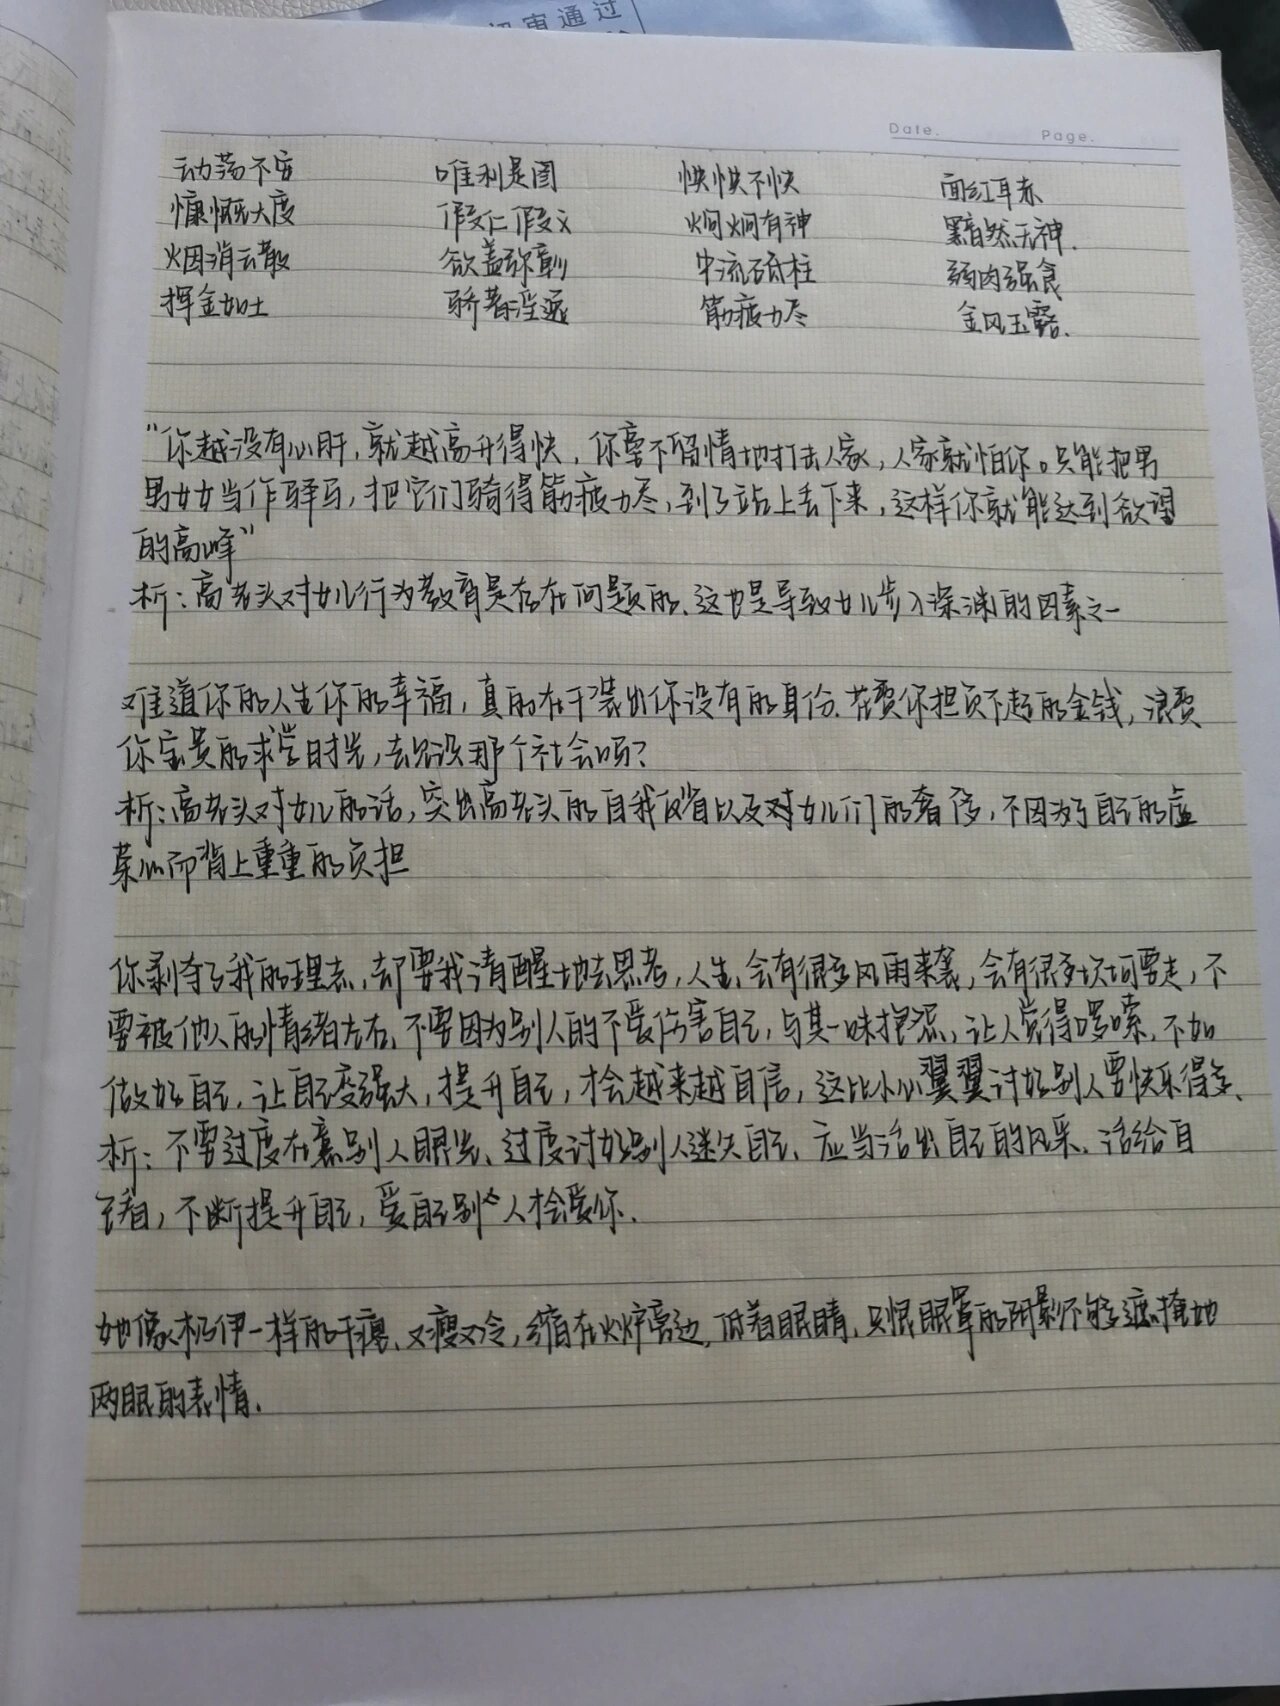 初审通过
Date. Page.
动荡不安 唯利是图 怏怏不快 面红耳赤
慷慨大度 假仁假义 炯炯有神 黯然无神.
烟消云散 欲盖弥彰 中流砥柱 弱肉强食
挥金如土 骄奢淫逸 筋疲力尽 金风玉露.
"你越没有心肝,就越高升得快,你要不留情地打击人家,人家就怕你。只能把男
男女女当作驿马,把它们骑得筋疲力尽,到了站上丢下来,这样你就能达到欲望
的高峰"
析:高老头对女儿行为教育是存在问题的、这也是导致女儿步入深渊的因素之一
难道你的人生你的幸福,真的在于装出你没有的身份、花费你担负不起的金钱,浪费
你宝贵的求学时光,去见识那个社会吗?
析:高老头对女儿的话,突出高老头的自我反省以及对女儿们的奢侈,不因为了自己的虚
荣心而背上重重的负担
你剥夺了我的理志,却要我清醒地去思考,人生、会有很多风雨来袭,会有很多坎坷要走,不
要被他人的情绪左右、不要因为别人的不爱伤害自己,与其一味抱怨,让人觉得啰嗦,不如
做好自己,让自己变强大,提升自己,才会越来越自信,这比小心翼翼讨好别人要快乐得多、
析:不要过度在意别人眼光、过度讨好别人迷失自己、应当活出自己的风采、活给自
己看,不断提升自己,爱自己别人才会爱你.
她像 一样的干瘪、又瘦又冷,缩在火炉旁边,低着眼睛、只恨眼罩的阴影不够遮掩她
两眼的表情.